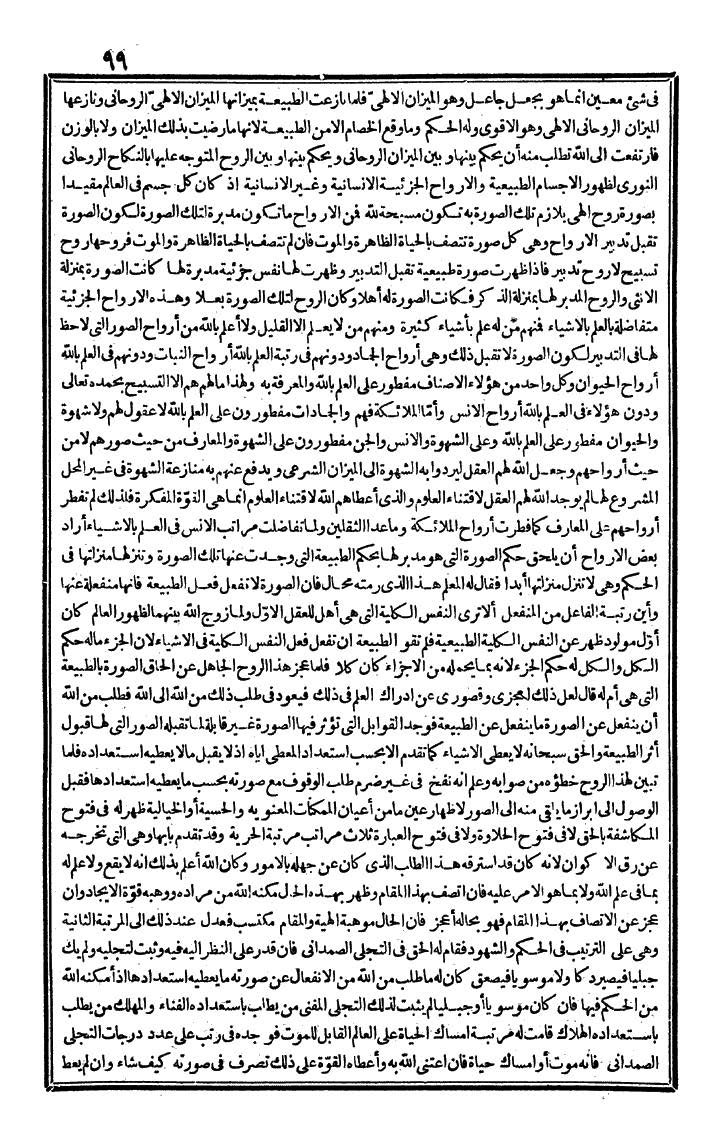 ٩٩
فى شئ معين انما هو بجعل جاعل وهو الميزان الالهىّ فلما نازعت الطبيعة بميزانها الميزان الالهىّ الروحانى ونازعها
الميزان الروحانى الالهى وهو الاقوى وله الحكم وما وقع الخصام الامن الطبيعة لانها ما رضيت بذلك الميزان ولا بالوزن
فارتفعت الى الله تطلب منه أن يحكم بينها و بين الميزان الروحانى و يحكم بينها و بين الروح المتوجه عليها بالنكاح الروحانى
النورى لظهور الاجسام الطبيعية والارواح الجزئية الانسانية وغير الانسانية اذ كان كل جسم فى العالم مقيدا
بصورة روح الهى يلازم تلك الصورة به تكون مسبحة لله فمن الارواح ما تكون مدبرة لتلك الصورة لكون الصورة
تقبل تدبير الارواح وهى كل صورة تتصف بالحياة الظاهرة والموت فان لم تتصف بالحياة الظاهرة والموت فروحها روح
تسبيح لا روح تدبير فاذا ظهرت صورة طبيعية تقبل التدبير وظهرت لها نفس جزئية مدبرة لها كانت الصورة بمنزلة
الانثى والروح المدبر لها بمنزلة الذكر فكانت الصورة له أهلا وكان الروح لتلك الصورة بعلا وهذه الارواح الجزئية
متفاضلة بالعلم بالاشياء فمنهم من له علم بأشياء كثيرة ومنهم من لا يعلم الا القليل ولا أعلم بالله من أرواح الصور التى لاحظ
لها فى التدبير لكون الصورة لا تقبل ذلك وهى أرواح الجماد ودونهم فى رتبة العلم بالله أرواح النبات ودونهم فى العلم بالله
أرواح الحيوان وكل واحد من هؤلاء الاصناف مفطور على العلم بالله والمعرفة به ولهذا مالهم هم الا التسبيح بحمده تعالى
ودون هؤلاء فى العلم بالله أرواح الانس وأمّا الملائكة فهم والجمادات مفطورون على العلم بالله لا عقول لهم ولا شهوة
والحيوان مفطور على العلم بالله وعلى الشهوة والانس والجن مفطورون على الشهوة والمعارف من حيث صورهم لا من
حيث أرواحهم وجعل الله لهم العقل ليردوا به الشهوة الى الميزان الشرعى ويدفع عنهم به منازعة الشهوة فى غير المحل
المشروع لها لم يوجد الله لهم العقل لاقتناء العلوم والذى أعطاهم الله لاقتناء العلوم انما هى القوّة المفكرة فلذلك لم تفطر
أرواحهم على المعارف كما فطرت أرواح الملائكة وماعدا الثقلين ولما تفاضلت مراتب الانس فى العلم بالاشياء أراد
بعض الارواح أن يلحق حكم الصورة التى هو مدبر لها بحكم الطبيعة التى وجدت عنها تلك الصورة وتنزلها منزلتها فى
الحكم وهى لا تنزل منزلتها أبدا فقال له المعلم هذا الذى رمته محال فان الصورة لا تفعل فعل الطبيعة فانها منفعلة عنها
وأين رتبة الفاعل من المنفعل ألا ترى النفس الكلية التى هى أهل للعقل الاوّل ولما زوج الله بينهما لظهور العالم كان
أوّل مولود ظهر عن النفس الكلية الطبيعية فلم تقو الطبيعة ان تفعل فعل النفس الكلية فى الاشياء لان الجزء ماله حكم
الكل والكل له حكم الجزء لانه بما يحمله من الاجزاء كان كلا فلما عجز هذا الروح الجاهل عن الحاق الصورة بالطبيعة
التى هى أم له قال لعل ذلك لعجزى وقصورى عن ادراك العلم فى ذلك فيعود فى طلب ذلك من الله الى الله فطلب من الله
أن ينفعل عن الصورة ما ينفعل عن الطبيعة فوجد القوابل التى تؤثر فيها الصورة غير قابلة لما تقبله الصور التى لها قبول
أثر الطبيعة والحق سبحانه لا يعطى الاشياء كما تقدم الا بحسب استعداد المعطى اياه اذ لا يقبل ما لا يعطيه استعداده فلما
تبين لهذا الروح خطؤه من صوابه وعلم انه نفخ فى غير ضرم طلب الوقوف مع صورته بحسب ما يعطيه استعدادها فقبل
الوصول الى ابراز ما يلقى منه الى الصور لاظهار عين ما من أعيان الممكنات المعنوية والحسية أو الخيالية ظهر له فى فتوح
المكاشفة بالحق لا فى فتوح الحلاوة ولا فى فتوح العبارة ثلاث مراتب مرتبة الحرية وقد تقدم بابها وهى التى تخرجه
عن رق الاكوان لانه كان قد استرقه هذا الطلب الذى كان عن جهله بالامور وكان الله أعلم بذلك انه لا يقع ولا علم له
بما فى علم الله ولا بما هو الامر عليه فان اتصف بهذا المقام وظهر بهذه الحال مكنه الله من مراده ووهبه قوّة الايجاد وان
عجز عن الاتصاف بهذا المقام فهو بحاله أعجز فان الحال موهبة الهية والمقام مكتسب فعدل عند ذلك الى المرتبة الثانية
وهى على الترتيب فى الحكم والشهود فقام له الحق فى التجلى الصمدانى فان قدر على النظر اليه فيه وثبت لتجليه ولم يك
جبليا فيصير دكا ولا موسويا فيصعق كان له ما طلب من الله من الانفعال عن صورته ما يعطيه استعدادها اذ أمكنه الله
من الحكم فيها فان كان موسويا أو جبليا لم يثبت لذلك التجلى المفنى من يطلب باستعداده الفناء والمهلك من يطلب
باستعداده الهلاك قامت له مرتبة امساك الحياة على العالم القابل للموت فوجده فى رتب على عدد درجات التجلى
الصمدانى فانه موت أو امساك حياة فان اعتنى الله به وأعطاه القوّة على ذلك تصرف فى صورته كيف شاء وان لم يعط